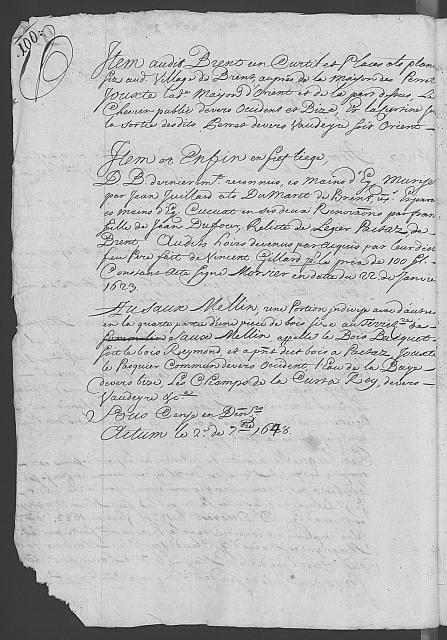 1003
Item audit Brent un Curtil et Places a la plan
sis aud. Village de Brent, auprès de la Maison des Perret
Jouxte lad. Maison d'Orient et de la part dessus Le
Chemin public devers Occident et Bize,
la sortie desdits Perret devers Vaudeyre soit Orient
Item or Enfin en fief liege,
D. B. dernierem.t reconnus, es mains d'Eg. Murise
par Jean Juillard de Brent,
es mains d'Eg. Cucuat en ses deux Renovations par fran
Fille de Jean Dufour, Relicte de Legier Paisaz de
Brent. Audits hoirs devenus par acquis par leur dict
feu Pere fait de Vincent Gillard p.r le prix de 100 fl.
Constans Acte signé Monsier en datte du 22 de Janvie
1623.
A Jusaux Mellin, une Portion indivise avec d'autre
en la quarte partie d'une piece de bois sise au Terri.re de
Jusaux Mellin, appellé le Bois Busquet
soit le bois Reymond et aprés dict bois a Paisaz Jouxte
le Pasquier Commun devers Occident, l'Eau de la Baye
devers bise, Les Champs de la Cursa Rey, devers
Vaudeyre &c.a
Sous Cense en Den.rs
Actum le 2.e de 7.bre 1648.